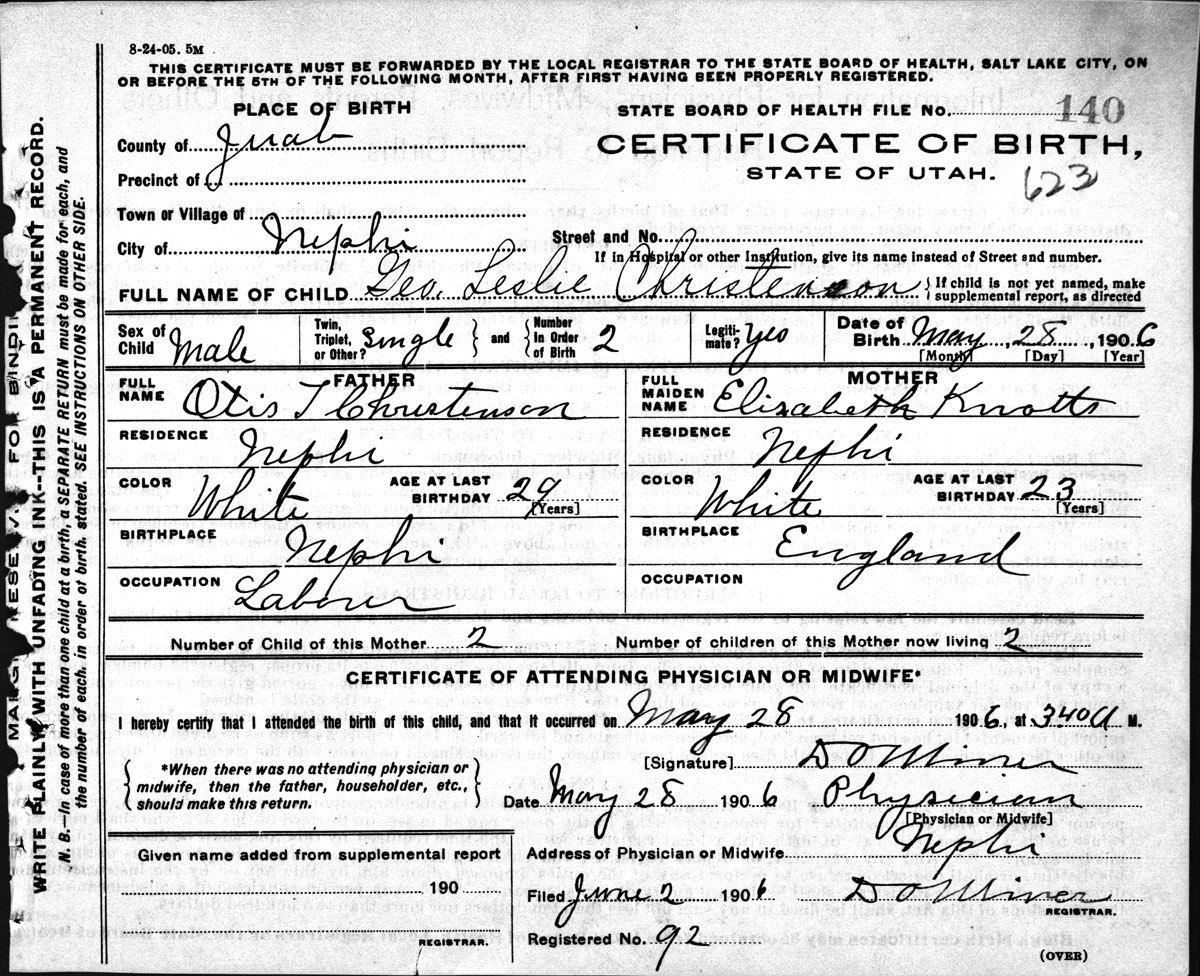 8-24-05. 5M
THIS CERTIFICATE MUST BE FORWARDED BY THE LOCAL REGISTRAR TO THE STATE BOARD OF HEALTH, SALT LAKE CITY, ON
OR BEFORE THE 5TH OF THE FOLLOWING MONTH, AFTER FIRST HAVING BEEN PROPERLY REGISTERED.
PLACE OF BIRTH
STATE BOARD OF HEALTH FILE No. 140
County of Juab
CERTIFICATE OF BIRTH,
Precinct of
STATE OF UTAH. 623
Town or Village of
City of Nephi
Street and No.
If in Hospital or other Institution, give its name instead of Street and number.
FULL NAME OF CHILD Geo. Leslie Christenson { If child is not yet named, make
supplemental report, as directed
Sex of Child Male Twin, Triplet, or Other? Single } and { Number in Order of Birth 2 Legitimate? yes Date of Birth May 28, 1906
[Month] [Day] [Year]
FATHER
FULL NAME Otis T Christenson
RESIDENCE Nephi
COLOR White AGE AT LAST BIRTHDAY 29 [Years]
BIRTHPLACE Nephi
OCCUPATION Laborer
MOTHER
FULL MAIDEN NAME Elizabeth Knotts
RESIDENCE Nephi
COLOR White AGE AT LAST BIRTHDAY 23 [Years]
BIRTHPLACE England
OCCUPATION
Number of Child of this Mother 2 Number of children of this Mother now living 2
CERTIFICATE OF ATTENDING PHYSICIAN OR MIDWIFE*
I hereby certify that I attended the birth of this child, and that it occurred on May 28 1906, at 340 a M.
{ *When there was no attending physician or
midwife, then the father, householder, etc.,
should make this return. }
[Signature] D O Miner
Date May 28 1906 Physician
[Physician or Midwife]
Given name added from supplemental report
190
REGISTRAR.
Address of Physician or Midwife Nephi
Filed June 2 1906 D O Miner
REGISTRAR.
Registered No. 92
(OVER)
WRITE PLAINLY WITH UNFADING INK--THIS IS A PERMANENT RECORD.
N. B.--In case of more than one child at a birth, a SEPARATE RETURN must be made for each, and
the number of each, in order of birth, stated. SEE INSTRUCTIONS ON OTHER SIDE.